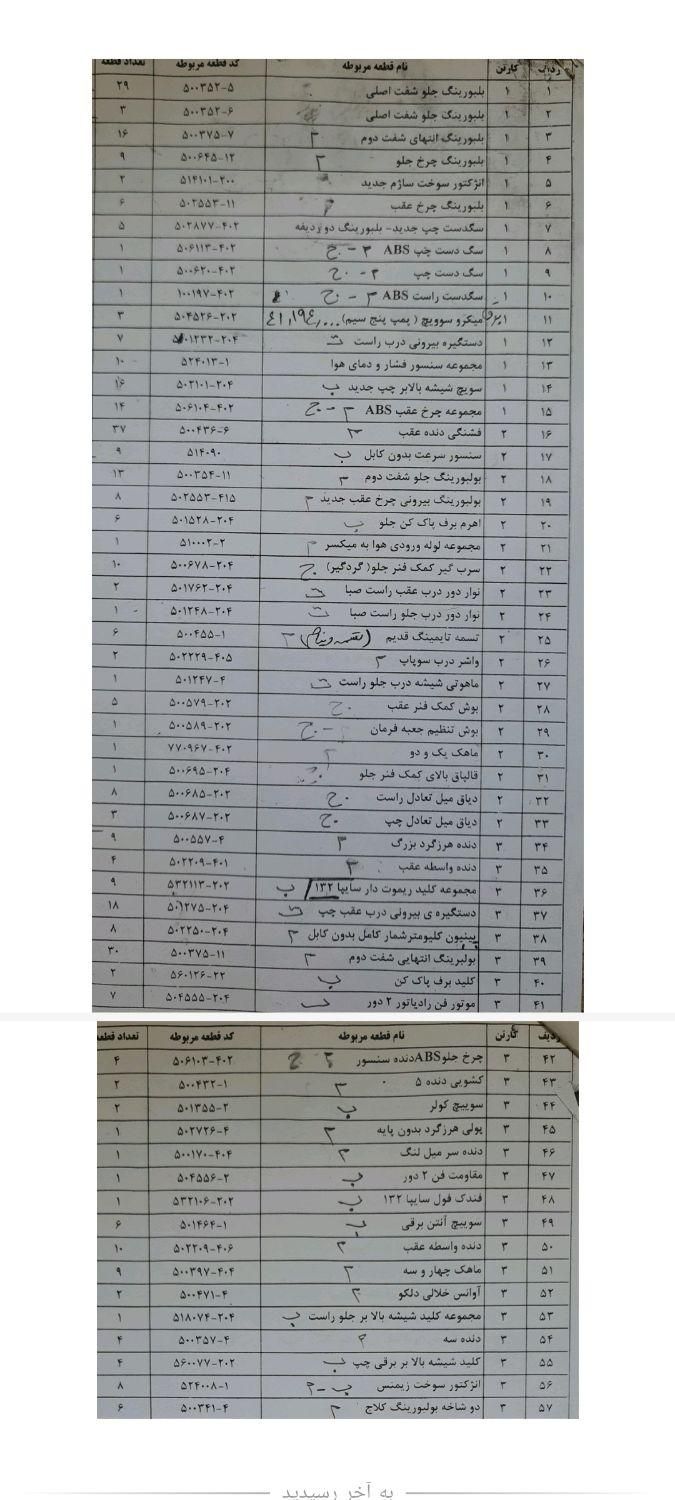 ردیف کارتن نام قطعه مربوطه کد قطعه مربوطه تعداد قطعه
۱ ۱ بلبورینگ جلو شفت اصلی ۵۰۰۳۵۲-۵ ۲۹
۲ ۱ بلبورینگ جلو شفت اصلی ۵۰۰۳۵۲-۶ ۳
۳ ۱ بلبورینگ انتهای شفت دوم م ۵۰۰۳۷۵-۷ ۱۶
۴ ۱ بلبورینگ چرخ جلو م ۵۰۰۶۴۵-۱۲ ۹
۵ ۱ انژکتور سوخت ساژم جدید ۵۱۴۱۰۱-۲۰۰ ۲
۶ ۱ بلبورینگ چرخ عقب م ۵۰۲۵۵۳-۱۱ ۶
۷ ۱ سگدست چپ جدید- بلبورینگ دو ردیفه ۵۰۲۸۷۷-۴۰۲ ۵
۸ ۱ سگ دست چپ ABS م - ج ۵۰۶۱۱۳-۴۰۲ ۱
۹ ۱ سگ دست چپ م - ج ۵۰۰۶۲۰-۴۰۲ ۱
۱۰ ۱ سگدست راست ABS م - ج ۱۰۰۱۹۷-۴۰۲ ۱
۱۱ ۱ میکرو سوویچ ( پمپ پنج سیم) ۵۰۴۵۲۶-۲۰۲ ۳
۱۲ ۱ دستگیره بیرونی درب راست ت ۵۰۱۲۳۲-۲۰۴ ۷
۱۳ ۱ مجموعه سنسور فشار و دمای هوا ۵۲۴۰۱۳-۱ ۱۰
۱۴ ۱ سویچ شیشه بالابر چپ جدید ب ۵۰۲۱۰۱-۲۰۴ ۱۶
۱۵ ۱ مجموعه چرخ عقب ABS م - ج ۵۰۶۱۰۴-۴۰۲ ۱۴
۱۶ ۲ فشنگی دنده عقب م ۵۰۰۴۳۶-۶ ۳۷
۱۷ ۲ سنسور سرعت بدون کابل ب ۵۱۴۰۹۰ ۹
۱۸ ۲ بولبورینگ جلو شفت دوم م ۵۰۰۳۵۴-۱۱ ۱۳
۱۹ ۲ بولبورینگ بیرونی چرخ عقب جدید م ۵۰۲۵۵۳-۴۱۵ ۸
۲۰ ۲ اهرم برف پاک کن جلو ب ۵۰۱۵۲۸-۲۰۴ ۶
۲۱ ۲ مجموعه لوله ورودی هوا به میکسر م ۵۱۰۰۰۲-۲ ۱
۲۲ ۲ سرب گیر کمک فنر جلو( گردگیر) ج ۵۰۰۶۷۸-۲۰۴ ۱۰
۲۳ ۲ نوار دور درب عقب راست صبا ت ۵۰۱۷۶۲-۲۰۴ ۲
۲۴ ۲ نوار دور درب جلو راست صبا ت ۵۰۱۲۴۸-۲۰۴ ۱
۲۵ ۲ تسمه تایمینگ قدیم م ۵۰۰۴۵۵-۱ ۶
۲۶ ۲ واشر درب سوپاپ م ۵۰۲۲۲۹-۴۰۵ ۲
۲۷ ۲ ماهوتی شیشه درب جلو راست ت ۵۰۱۲۴۷-۴ ۱
۲۸ ۲ بوش کمک فنر عقب ج ۵۰۰۵۷۹-۲۰۲ ۵
۲۹ ۲ بوش تنظیم جعبه فرمان - ج ۵۰۰۵۸۹-۲۰۲ ۱
۳۰ ۲ ماهک یک و دو م ۷۷۰۹۶۷-۴۰۲ ۱
۳۱ ۲ قالپاق بالای کمک فنر جلو ۵۰۰۶۹۵-۲۰۴ ۱
۳۲ ۲ دیاق میل تعادل راست ج ۵۰۰۶۸۵-۲۰۲ ۸
۳۳ ۲ دیاق میل تعادل چپ ج ۵۰۰۶۸۷-۲۰۲ ۳
۳۴ ۳ دنده هرزگرد بزرگ م ۵۰۰۵۵۷-۴ ۹
۳۵ ۳ دنده واسطه عقب م ۵۰۲۲۰۹-۴۰۱ ۴
۳۶ ۳ مجموعه کلید ریموت دار سایپا ۱۳۲ ب ۵۳۲۱۱۳-۲۰۲ ۹
۳۷ ۳ دستگیره ی بیرونی درب عقب چپ ت ۵۰۱۲۷۵-۲۰۴ ۱۸
۳۸ ۳ پینیون کلیومترشمار کامل بدون کابل م ۵۰۲۲۵۰-۲۰۴ ۸
۳۹ ۳ بولبرینگ انتهایی شفت دوم م ۵۰۰۳۷۵-۱۱ ۳۰
۴۰ ۳ کلید برف پاک کن ب ۵۶۰۱۲۶-۲۲ ۲
۴۱ ۳ موتور فن رادیاتور ۲ دور ب ۵۰۴۵۵۵-۲۰۴ ۷
ردیف کارتن نام قطعه مربوطه کد قطعه مربوطه تعداد قطعه
۴۲ ۳ چرخ جلوABSدنده سنسور م ج ۵۰۶۱۰۳-۴۰۲ ۴
۴۳ ۳ کشویی دنده ۵ م ۵۰۰۴۳۲-۱ ۲
۴۴ ۳ سوییچ کولر ب ۵۰۱۳۵۵-۲ ۲
۴۵ ۳ پولی هرزگرد بدون پایه م ۵۰۲۷۲۶-۴ ۱
۴۶ ۳ دنده سر میل لنگ م ۵۰۰۱۷۰-۴۰۴ ۱
۴۷ ۳ مقاومت فن ۲ دور ب ۵۰۴۵۵۶-۲ ۱
۴۸ ۳ فندک فول سایپا ۱۳۲ ب ۵۳۲۱۰۶-۲۰۲ ۱
۴۹ ۳ سوییچ آنتن برقی ب ۵۰۱۴۶۴-۱ ۶
۵۰ ۳ دنده واسطه عقب م ۵۰۲۲۰۹-۴۰۶ ۱۰
۵۱ ۳ ماهک چهار و سه م ۵۰۰۳۹۷-۴۰۴ ۹
۵۲ ۳ آوانس خلالی دلکو م ۵۰۰۴۷۱-۴ ۲
۵۳ ۳ مجموعه کلید شیشه بالا بر جلو راست ب ۵۱۸۰۷۴-۲۰۴ ۱
۵۴ ۳ دنده سه م ۵۰۰۳۵۷-۴ ۴
۵۵ ۳ کلید شیشه بالا بر برقی چپ ب ۵۶۰۰۷۷-۲۰۲ ۴
۵۶ ۳ انژکتور سوخت زیمنس ب - م ۵۲۴۰۰۸-۱ ۸
۵۷ ۳ دو شاخه بولبورینگ کلاج م ۵۰۰۳۴۱-۴ ۶
به آخر رسیدید